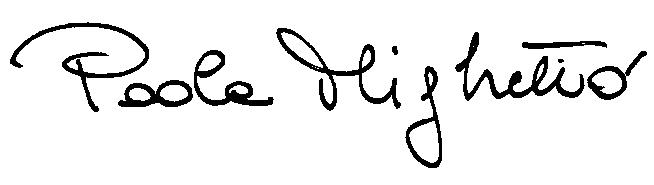 Paola Mighetto